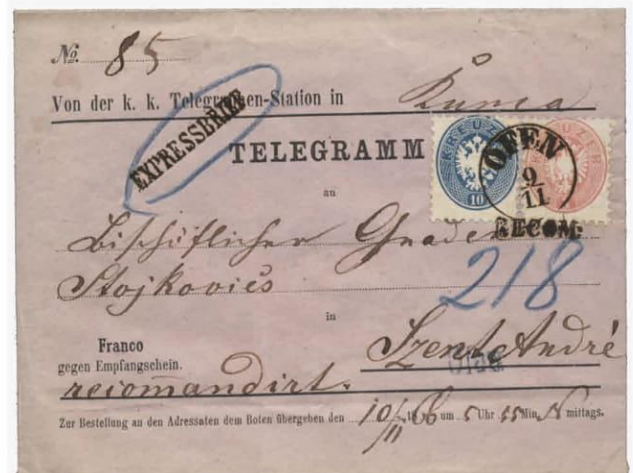 No. 85
Von der k. k. Telegraphen-Station in Ruma
EXPRESSBRIEF
TELEGRAMM
KREUZER
10
OFEN
9/11
RECOM:
an
Bischöflicher Gnaden
Stojkovics
218
in
Szent André
Franco
gegen Empfangschein.
recomandirt.
Zur Bestellung an den Adressaten dem Boten übergeben den 10/11 1866 um 5 Uhr 55 Min. N mittags.